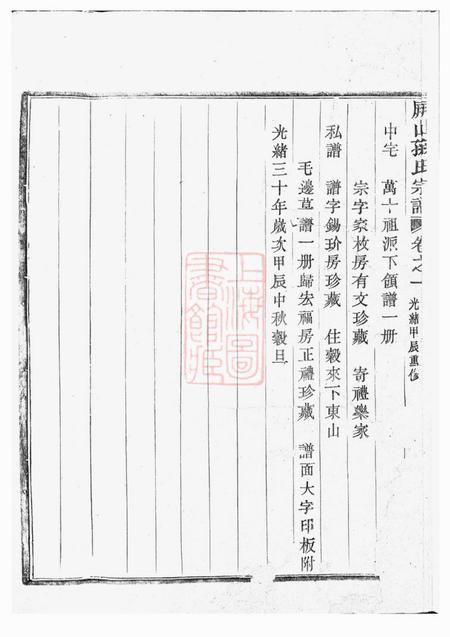 屏山孫氏宗譜 卷之一 光緒甲辰重修
中宅 萬十祖派下領譜一册
宗字家枚房有文珍藏 寄禮樂家
私譜 譜字錫玠房珍藏 住穀來下東山
毛邊草譜一册歸宏福房正禮珍藏 譜面大字印板附
光緒三十年歲次甲辰中秋穀旦
上海圖
書館藏